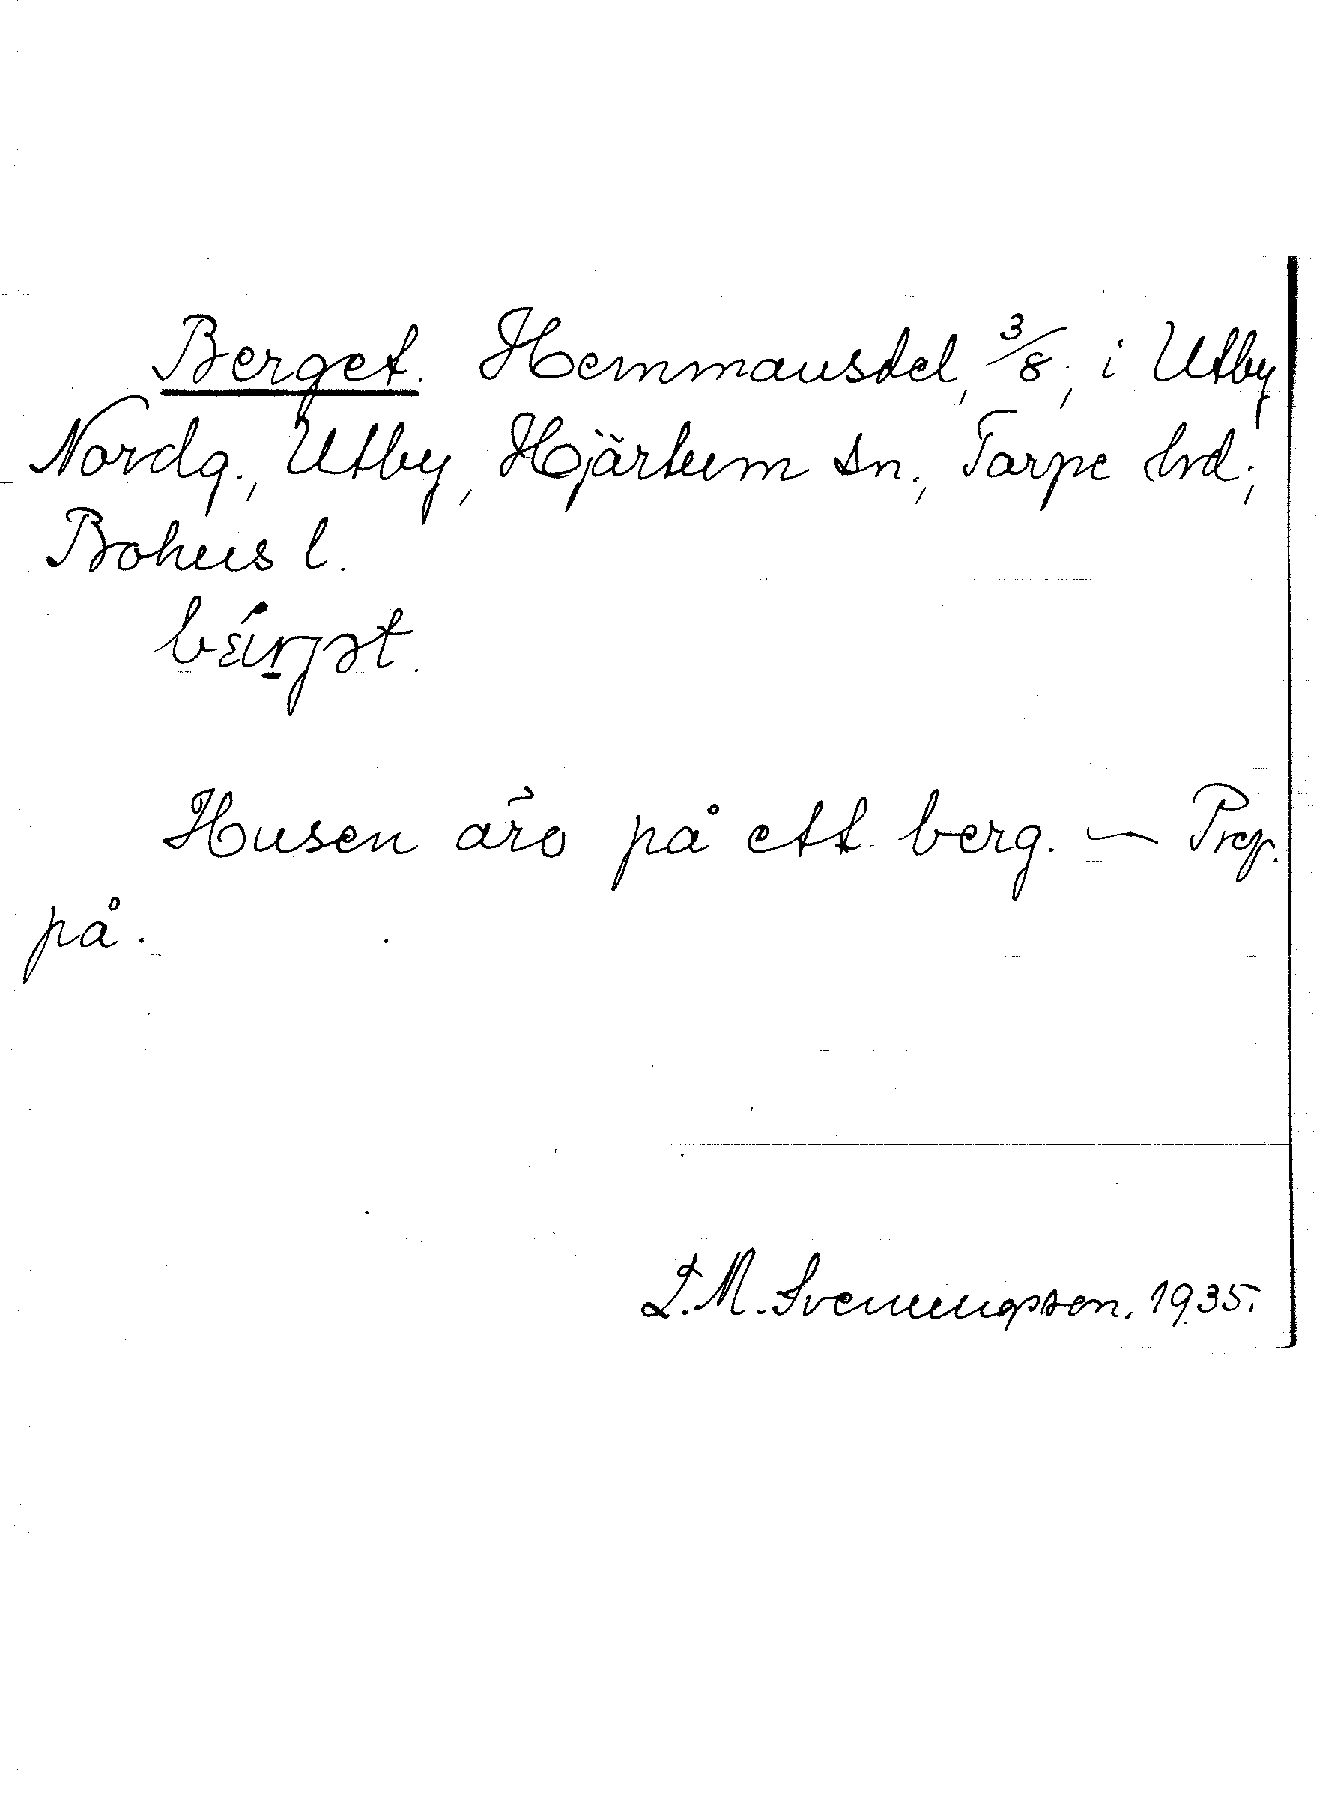 Berget. Hemmansdel, 3/8, i Utby
Nordg., Utby, Hjärtum sn., Torpe hd.,
Bohus l.
Husen äro på ett berg. — Prep.
på.
L.M. Svenungsson. 1935.